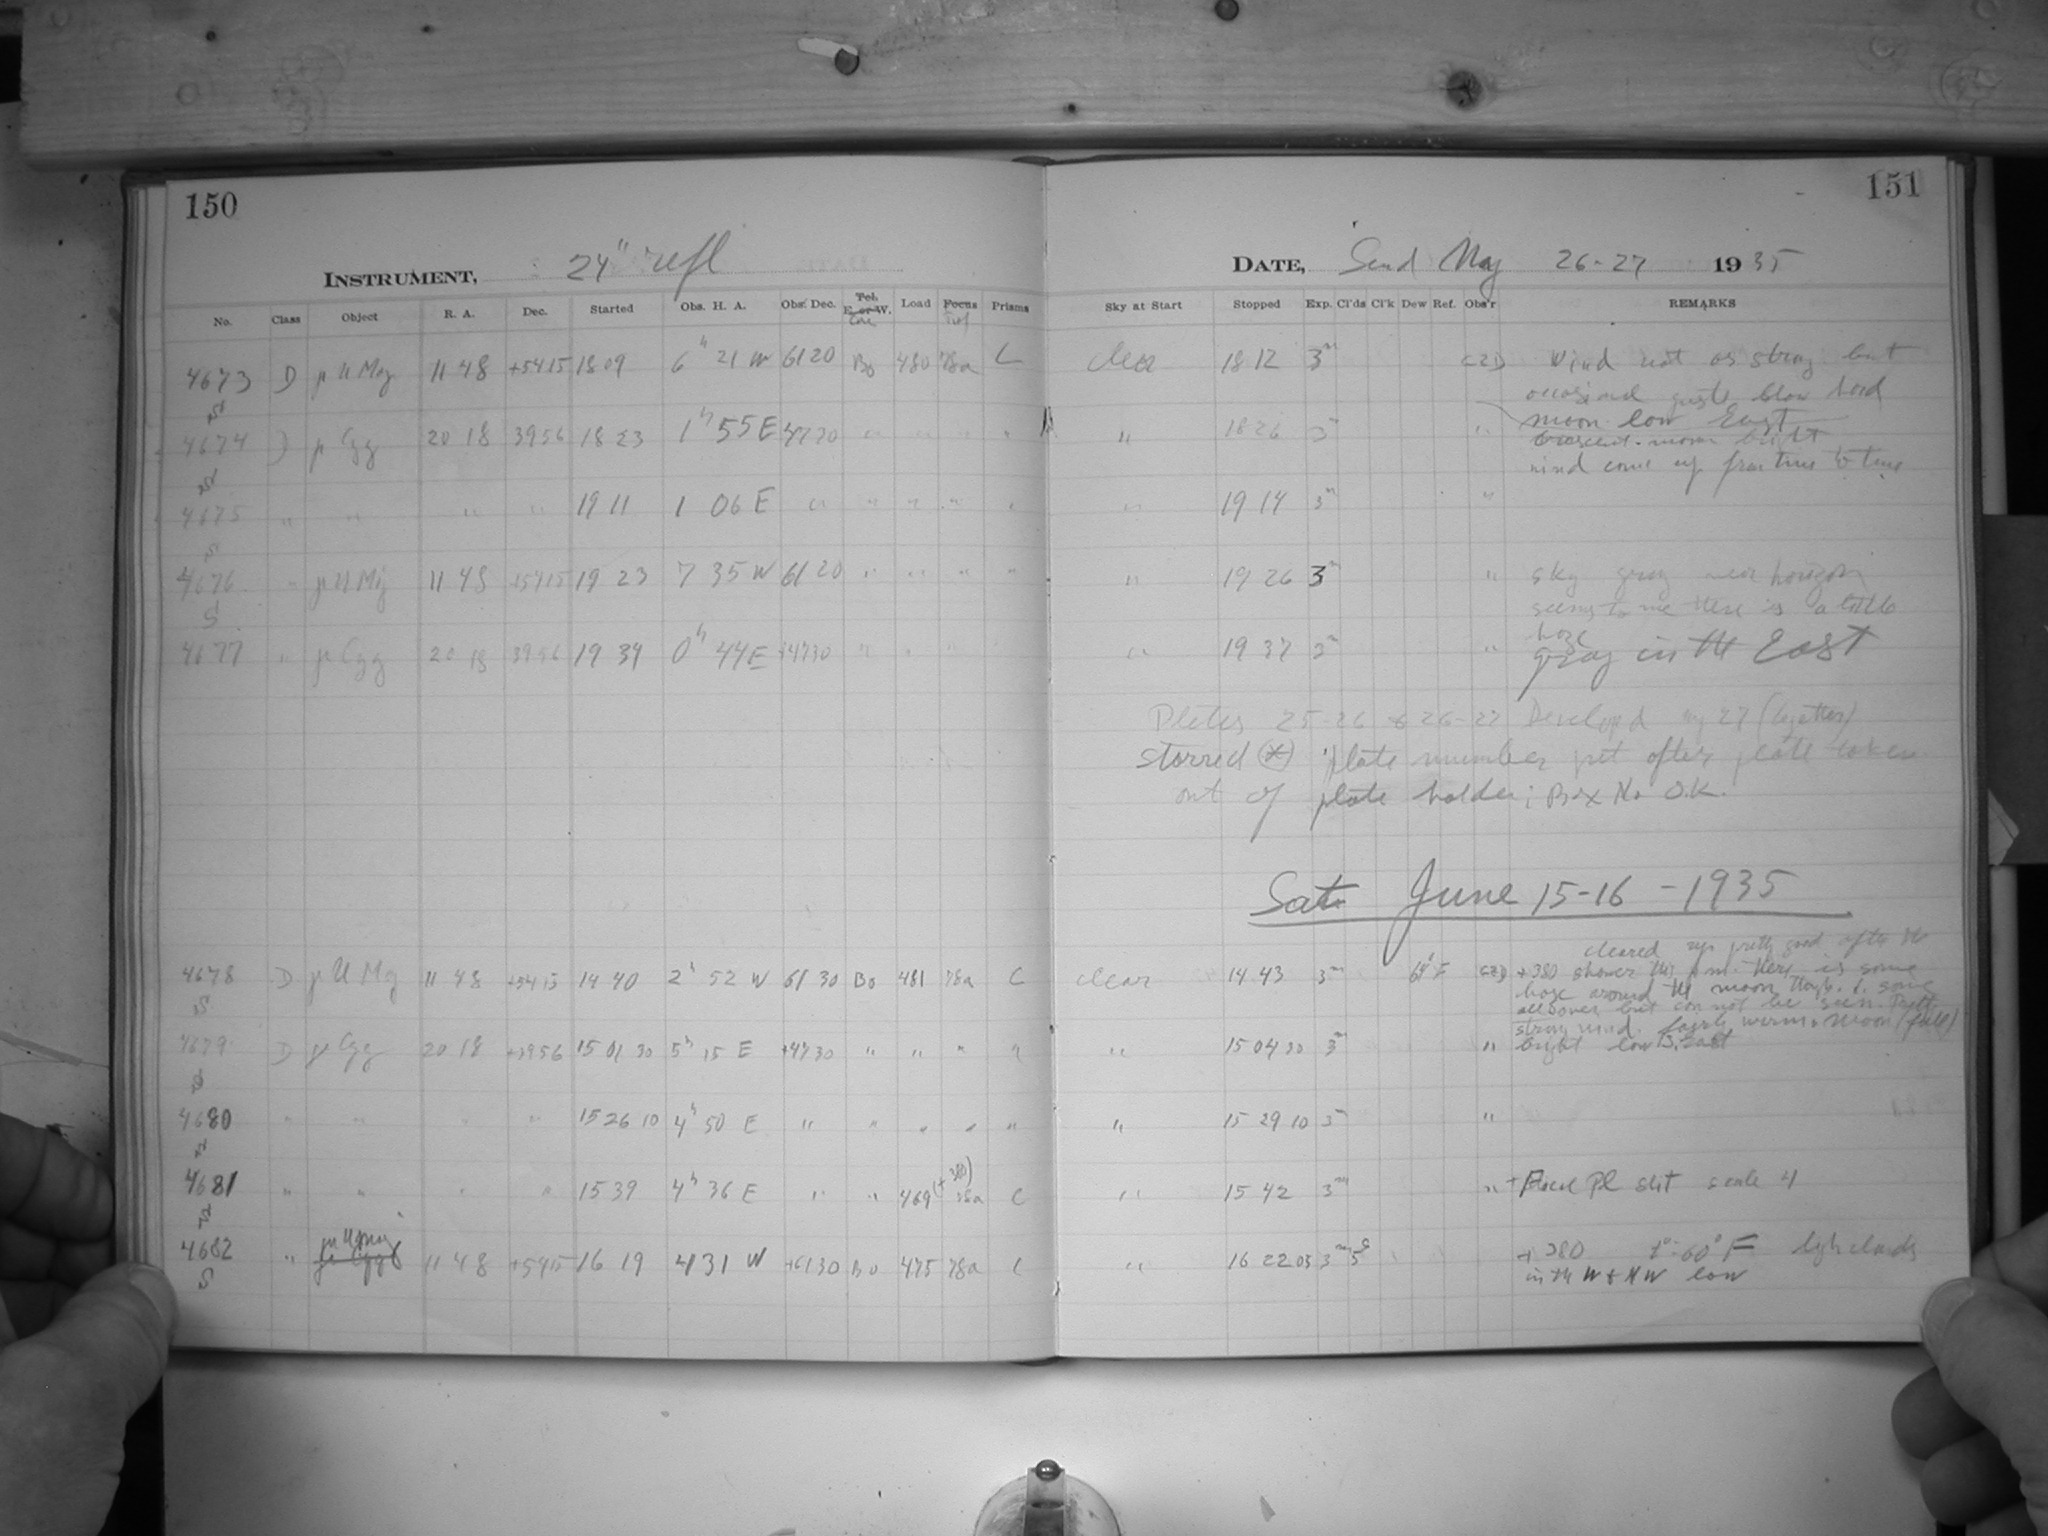 150
151
INSTRUMENT, 24" refl
DATE, Sund May 26-27 1935
No. Class Object R. A. Dec. Started Obs. H. A. Obs. Dec. Tel. E. or W. Load Focus Prisms
Sky at Start Stopped Exp. Cl'ds Cl'k Dew Ref. Obs'r REMARKS
4673 D μ U Maj 11 48 +5415 18 09 6h 21 W 6120 Bo 480 78a C clear 18 12 3m Wind not as strong but
occasional gusts blow hard
4674 D μ Cyg 20 18 3956 18 23 1h 55 E 4730 " " " " " 18 26 3 " moon low East
crescent moon bright
wind come up from time to time
4675 " " " " 19 11 1 06 E " " " " " " 19 14 3m "
4676 " μ U Mj 11 48 +5415 19 23 7 35 W 6120 " " " " " 19 26 3m " sky gray near horizon
seems to me there is a little
haze
4677 " μ Cyg 20 18 3956 19 34 0h 44 E +4730 " " " " 19 37 3m " gray in the East
Plates 25-26 & 26-27 Developed my 27 (together)
starred (*) plate number put after plate taken
out of plate holder; Box No O.K.
Sat. June 15-16 - 1935
4678 D μ U Mg 11 48 +5415 14 40 2h 52 W 6130 Bo 481 78a C clear 14 43 3m 64° F
cleared up pretty good after the
+380 shower this p.m. there is some
haze around the moon
all over but can not be seen.
strong wind. fairly warm. moon (full)
4679 D μ Cyg 20 18 +3956 15 01 30 5h 15 E +4730 " " " " " 15 04 30 3m " bright low S. East
4680 " " " " 15 26 10 4h 50 E " " " " " " 15 29 10 3m "
4681 " " " " 15 39 4h 36 E " " 469 (+380) 78a C " 15 42 3m " Focus Pl slit scale 4
4682 " μ U Maj μ Cyg 11 48 +5415 16 19 4 31 W +6130 Bo 475 78a C " 16 22 05 3m 5s +380 60° F light clouds
in the W & NW low